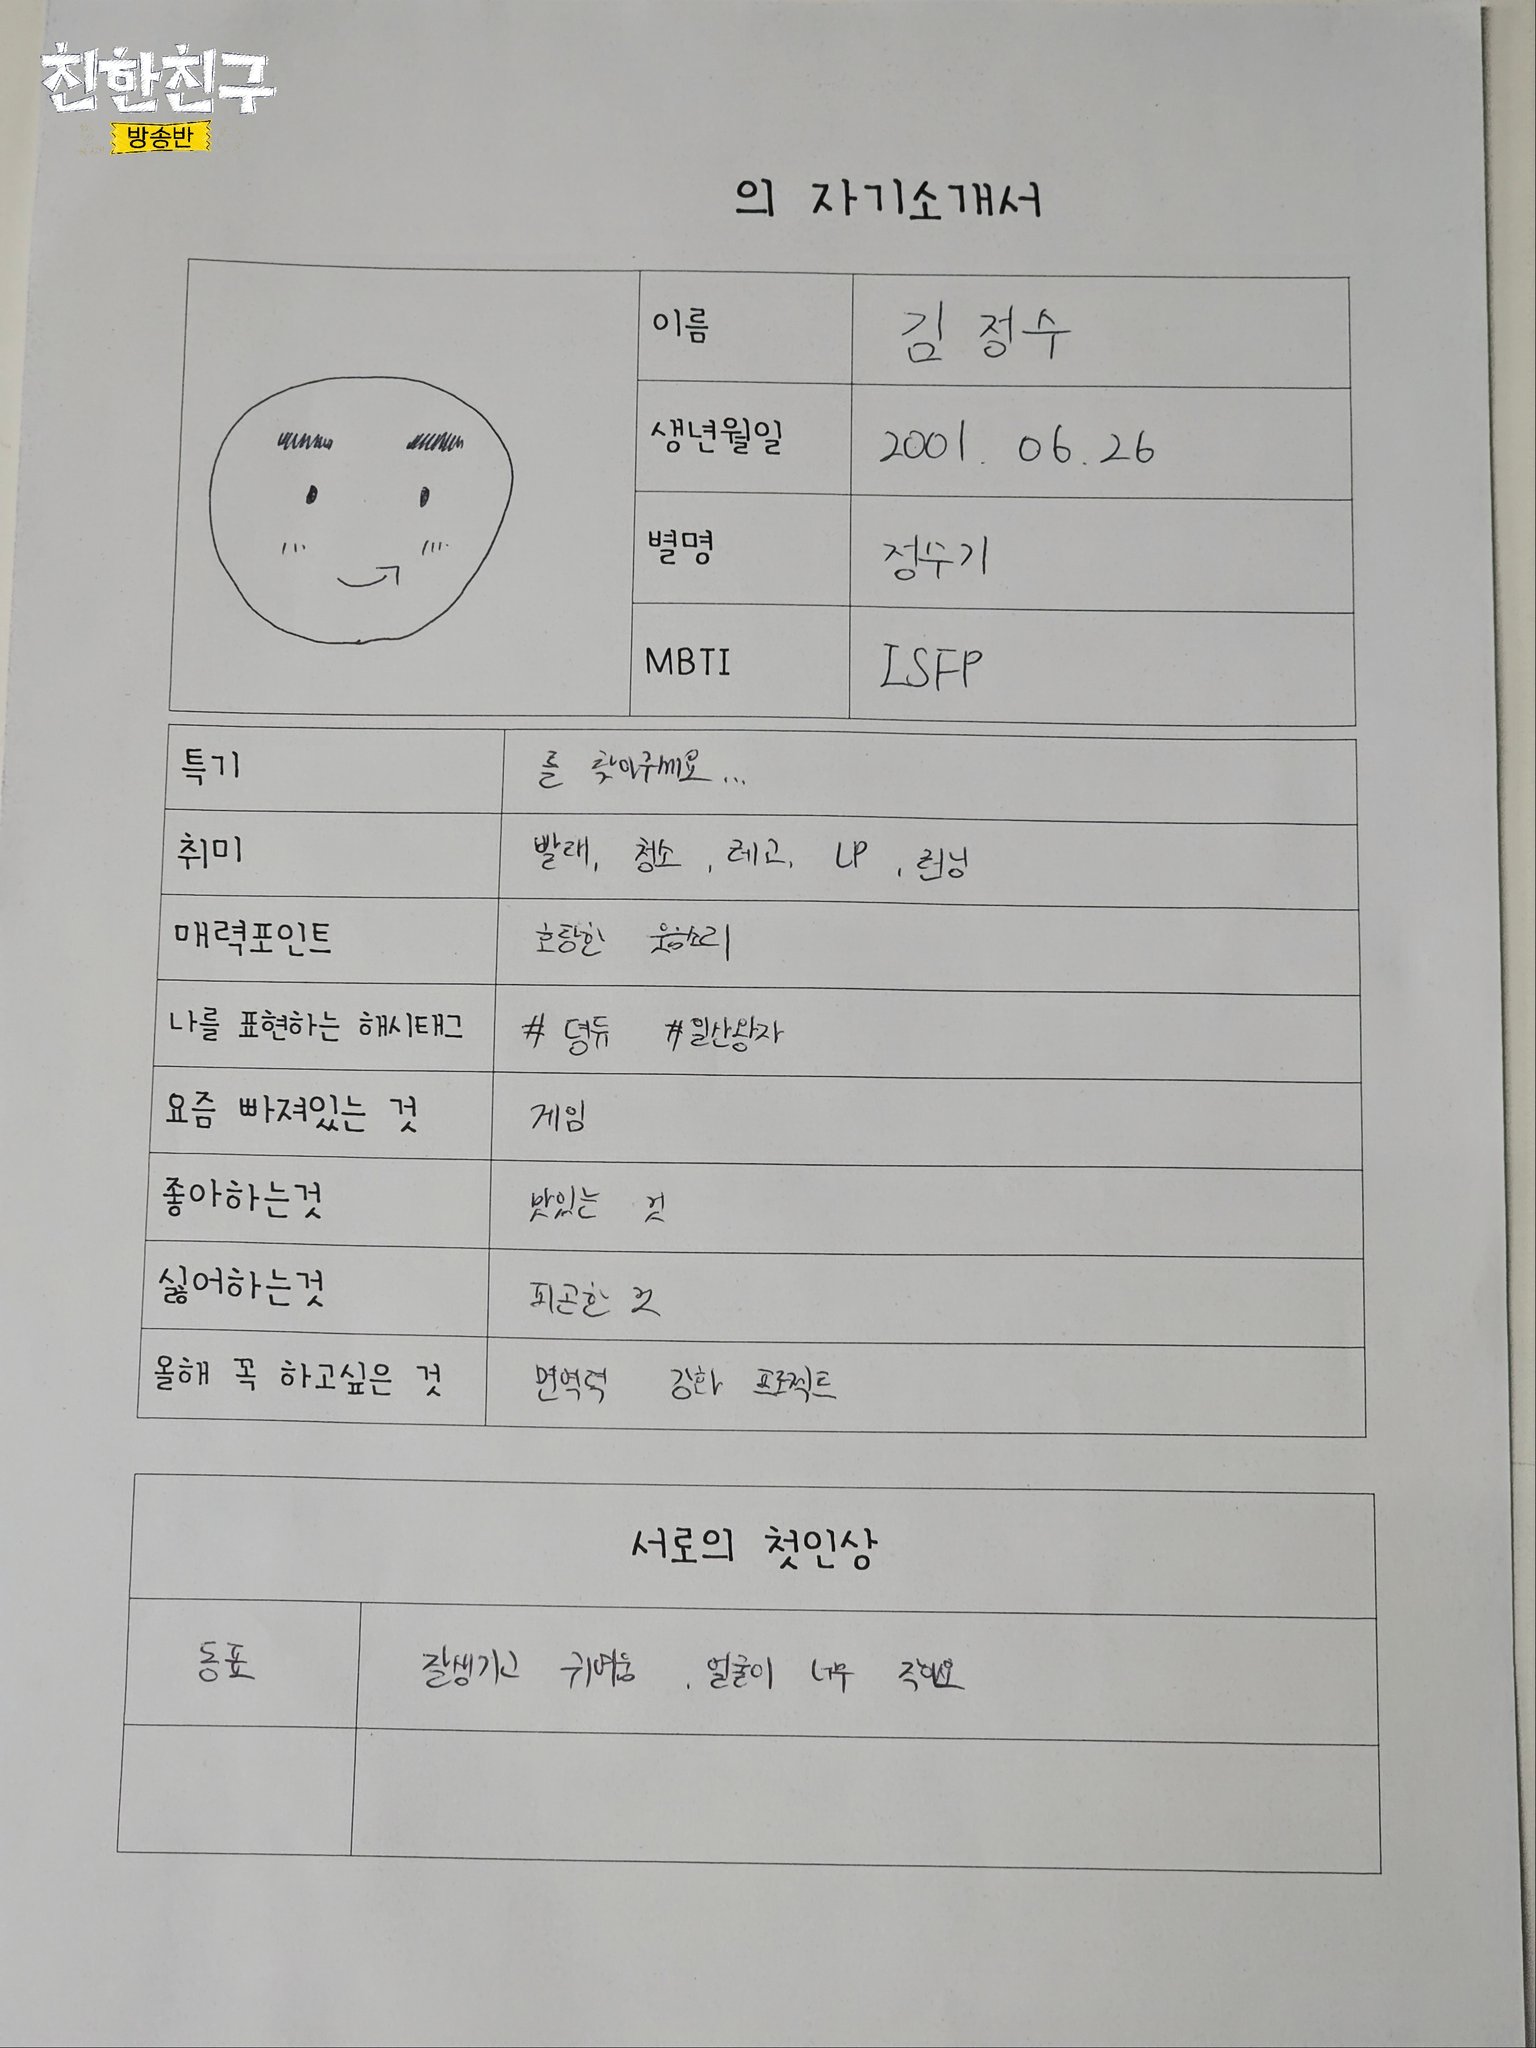 친한친구
방송반
의 자기소개서
이름 김 정수
생년월일 2001. 06. 26
별명 정수기
MBTI ISFP
특기 를 찾아주세요...
취미 빨래, 청소, 레고, LP, 런닝
매력포인트 호탕한 웃음소리
나를 표현하는 해시태그 # 뎡듀 #일산왕자
요즘 빠져있는 것 게임
좋아하는것 맛있는 것
싫어하는것 피곤한 것
올해 꼭 하고싶은 것 면역력 강화 프로젝트
서로의 첫인상
동표 잘생기고 귀여움, 얼굴이 너무 작아요